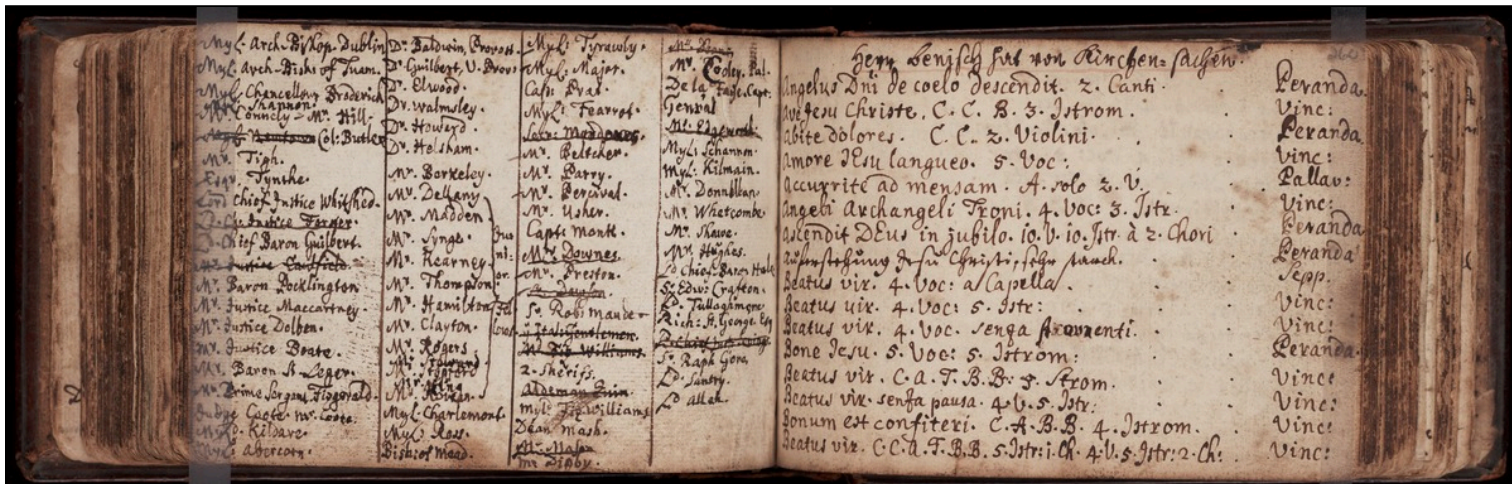 Myl. Arch-Biskop. Dublin
Myl. Arch-Bish: of Tuam.
Myl. Chancellour Broderick
Mr. Shannon.
Mr. Connely - Mr. Hill.
Col: Butler
Mr. Tigh.
Esqr. Tynthe.
Lord Chief Justice Whitshed.
L. Ch. Justice Forger.
L. Chief Baron Guilbert.
Mr. Justice Caulfield.
Mr. Baron Pocklington
Mr. Justice Maccartney.
Mr. Justice Dolben.
Mr. Justice Boate.
Mr. Baron St Leger.
Mr. Prime Sergant Fitzgerald.
Judge Coote. Mr. Coote.
Myld. Kildare.
Myl: Abercorn.
Dr. Baldwin, Provost.
Dr. Guilbert, V. Prov:
Dr. Elwood.
Dr. Walmsley.
Dr. Howard.
Dr. Helsham.
Mr. Borkeley.
Mr. Dellany
Mr. Madden.
Mr. Synge.
Mr. Kearney.
Mr. Thompson.
Mr. Hamilton
Mr. Clayton.
Mr. Rogers.
Mr. Stopford
Mr. King
Myl: Charlemont.
Myl: Ross.
Bish: of Mead.
Myl: Tyrawly.
Myl: Major.
Capt: Prat.
Myl: Fearrot.
Mr. Beltcher.
Mr. Parry.
Mr. Percival.
Mr. Usher.
Capt: Monk.
Mrs. Downes.
Mr. Preston.
Mr. Dawson.
Sr. Rob: Maude
Ital: Gentlemen.
Fitz Williams.
2. Sherifs.
Aldeman Quin.
Myl: Fitzwilliams
Dean Mash.
Mr. Mason
Mr Digby.
Mr. Cooley. Pal.
De la Faije. Capt:
Genval
Mr. Edgworth:
Myl: Schannon.
Myl: Kilmain.
Mr. Donnellan.
Mr. Whatcombe
Mr. Shawe.
Mr. Hughes.
Ld Chief Baron Hale
Sr. Edw: Crafton.
Ld. Tullaghmore
Rich: St. George Esq
Sr. Raph Gore.
Ld. Santry.
Ld. Allen.
362
Herr Benisch hat von Kirchen-sachen.
Angelus Dni de coelo descendit. 2. Canti. Peranda.
Ave Jesu Christe. C. C. B. 3. Istrom. Vinc:
Abite dolores. C. C. 2. Violini. Peranda
Amore Jesu langueo. 5. Voc: Vinc:
Accurrite ad mensam. A. solo 2. V. Pallav:
Angeli Archangeli Troni. 4. Voc: 3. Istr. Vinc:
Ascendit DEus in jubilo. 10. V. 10. Istr. à 2. Chori Peranda
Auferstehung Jesu Christi, sehr starck. Peranda
Beatus vir. 4. Voc: a Capella. Sepp.
Beatus vir. 4. Voc: 5. Istr: Vinc:
Beatus vir. 4. Voc. senza stromenti. Vinc:
Bone Jesu. 5. Voc: 5. Istrom: Peranda.
Beatus vir. C. A. T. B. B: 3. Strom. Vinc:
Beatus vir. senza pausa. 4. V. 5. Istr: Vinc:
Bonum est confiteri. C. A. B. B. 4. Istrom. Vinc:
Beatus vir. C. C. A. T. B. B. 5. Istr: 1. Ch. 4. V. 5. Istr: 2. Ch: Vinc: